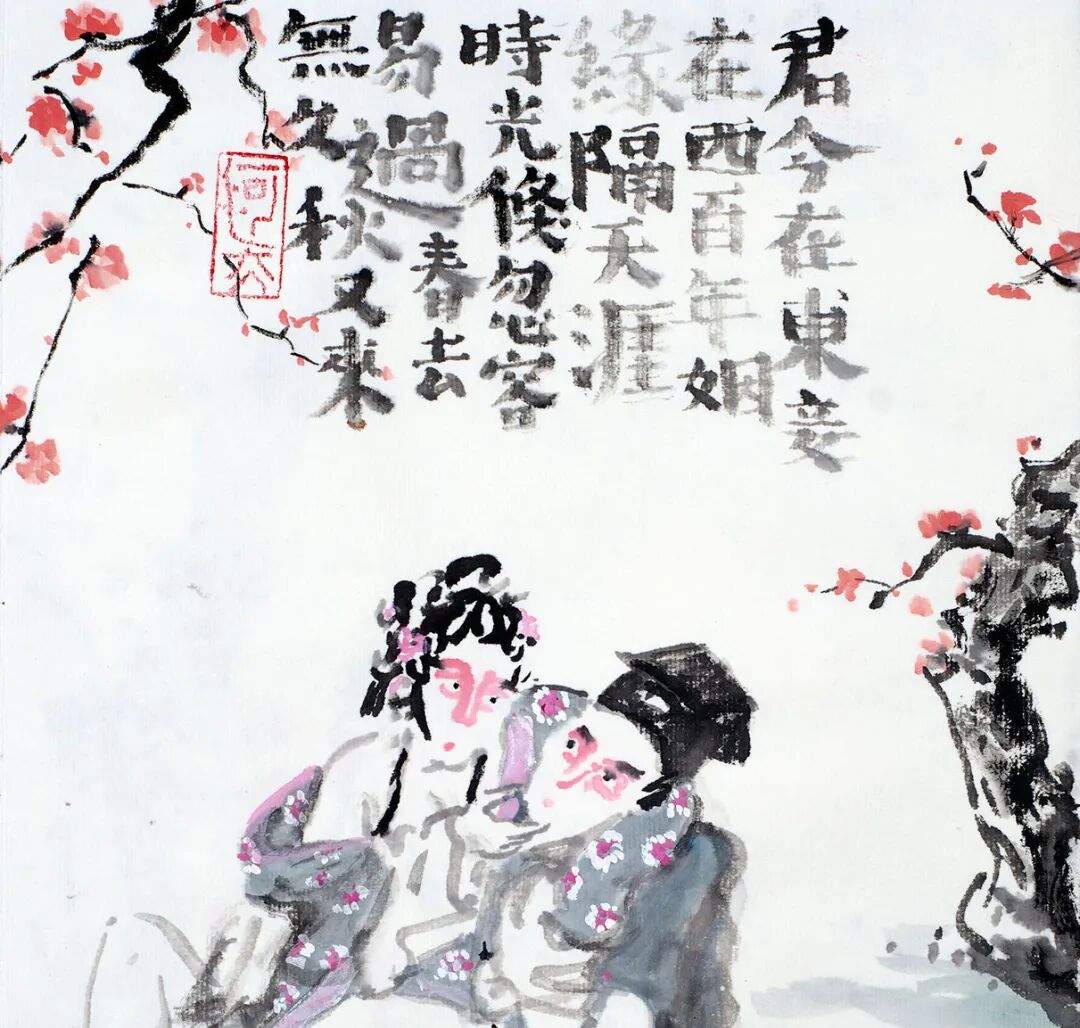 君今在東妾
在西百年姻
緣隔天涯
時光倏忽容
易過春去
無久秋又來